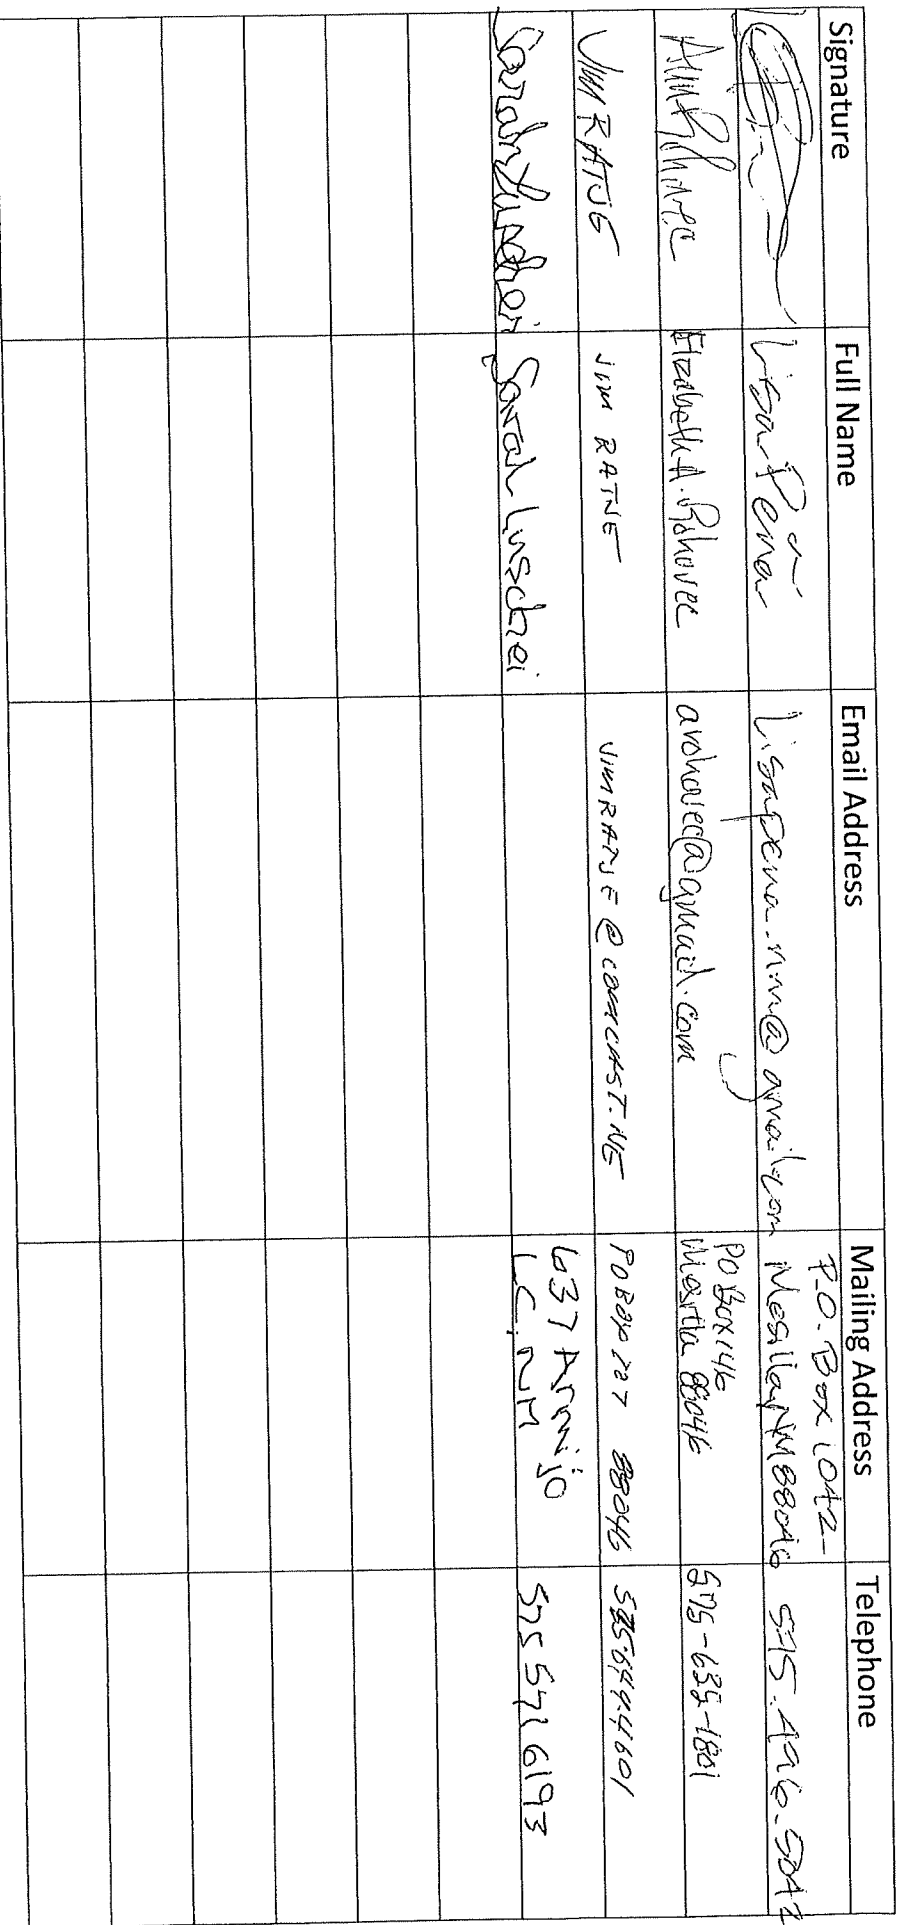 Signature Full Name Email Address Mailing Address Telephone
Lisa Peña Lisapena.nm@gmail.com P.O. Box 1042
Mesilla, NM 88046 575.496.5042
Elizabeth A. Rohovec arohovec@gmail.com PO Box 146
Mesilla 88046 575-635-1801
JIM RATJE JIM RATJE JIMRATJE@COMCAST.NE PO BOX 227 88046 5756444601
Sarah Luschei Sarah Luschei 637 Armijo
LC, NM 575 571 6193